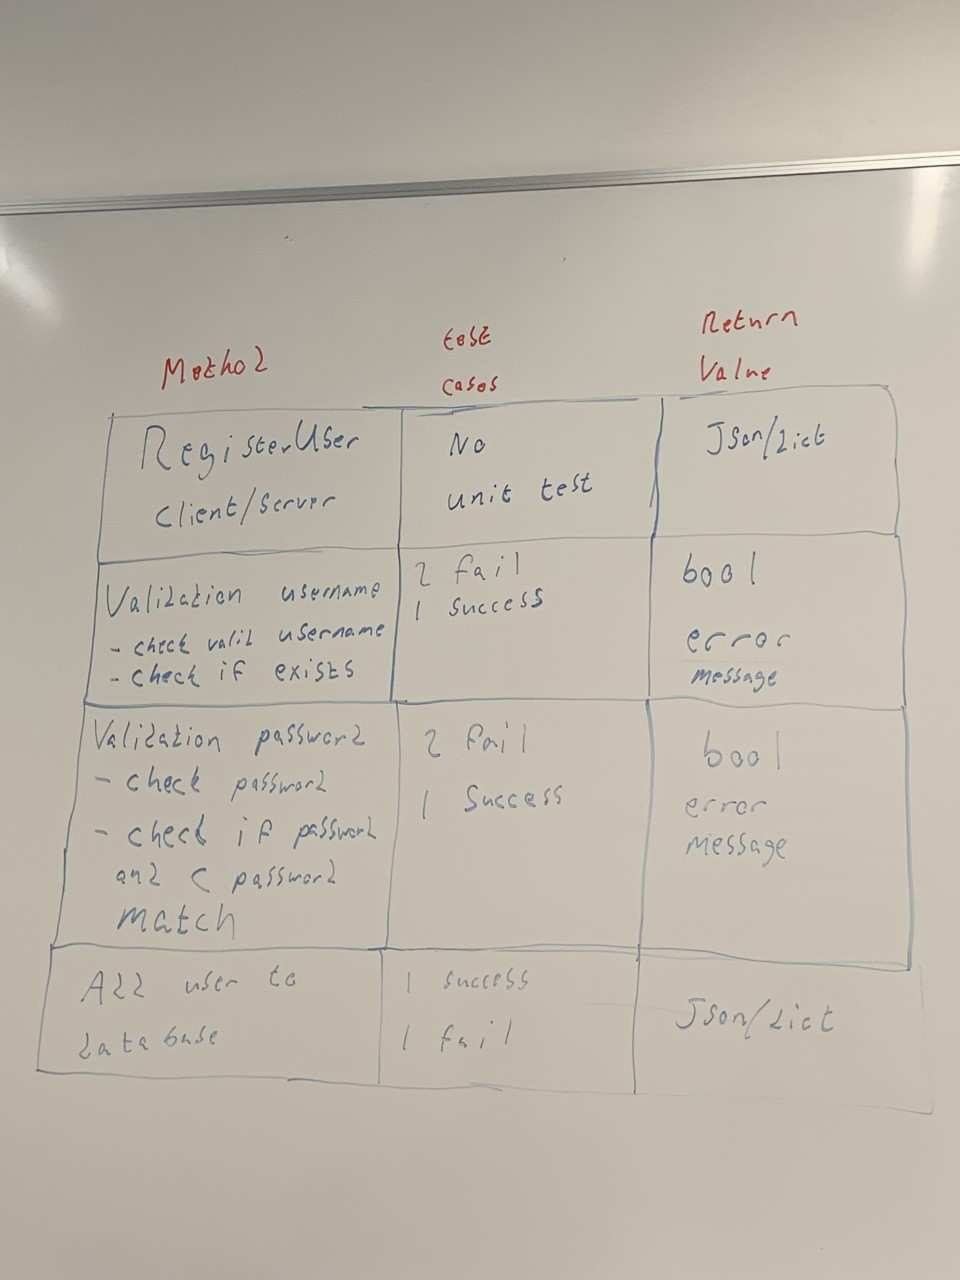 Method
test
cases
Return
Value
RegisterUser
Client/Server
No
unit test
Json/dict
Validation username
- check valid username
- check if exists
2 fail
1 success
bool
error
message
Validation password
- check password
- check if password
and C password
match
2 fail
1 Success
bool
error
message
Add user to
database
1 success
1 fail
Json/dict